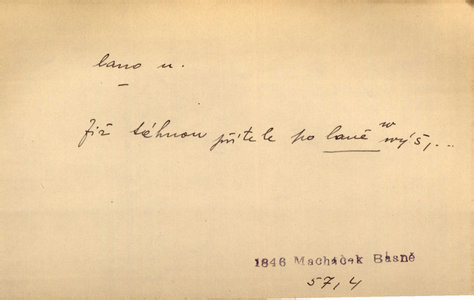 lano n.
Již táhnou přítele po laně w wýš,...
1846 Macháček Básně
57,4